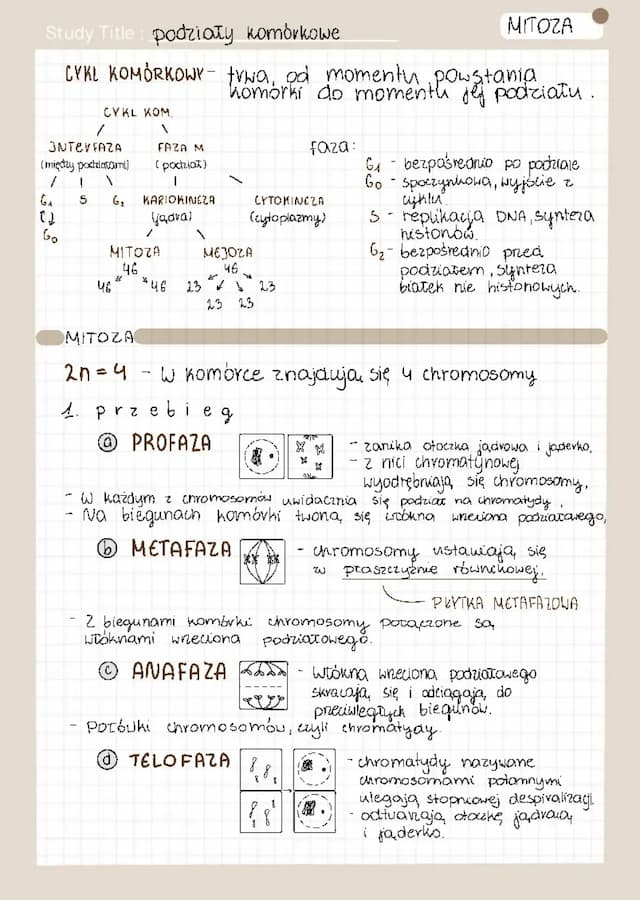 Study Title : podziały komórkowe
MITOZA
CYKL KOMÓRKOWY - trwa od momentu powstania
komórki do momentu jej podziału.
CYKL KOM.
INTERFAZA
FAZA M
(między podziałami)
(podział)
G1 S G2 KARIOKINEZA CYTOKINEZA
(jądra) (cytoplazmy)
G0
MITOZA MEJOZA
46 46
46 46 23 23
23 23
faza:
G1 - bezpośrednio po podziale
G0 - spoczynkowa, wyjście z
cyklu
S - replikacja DNA, synteza
histonów.
G2 - bezpośrednio przed
podziałem, synteza
białek nie histonowych.
MITOZA
2n = 4 - w komórce znajdują się 4 chromosomy
1. przebieg
a PROFAZA
- zanika otoczka jądrowa i jąderko.
- z nici chromatynowej
wyodrębniają się chromosomy.
- W każdym z chromosomów uwidacznia się podział na chromatydy.
- Na biegunach komórki tworzą się włókna wrzeciona podziałowego.
b METAFAZA
- chromosomy ustawiają się
w płaszczyźnie równikowej.
PŁYTKA METAFAZOWA
- Z biegunami komórki chromosomy połączone są
włóknami wrzeciona podziałowego.
c ANAFAZA
- Włókna wrzeciona podziałowego
skracają się i odciągają do
przeciwległych biegunów.
- Połówki chromosomów, czyli chromatydy.
d TELOFAZA
- chromatydy nazywane
chromosomami potomnymi
ulegają stopniowej despiralizacji
- odtwarzają otoczkę jądrową
i jąderko.